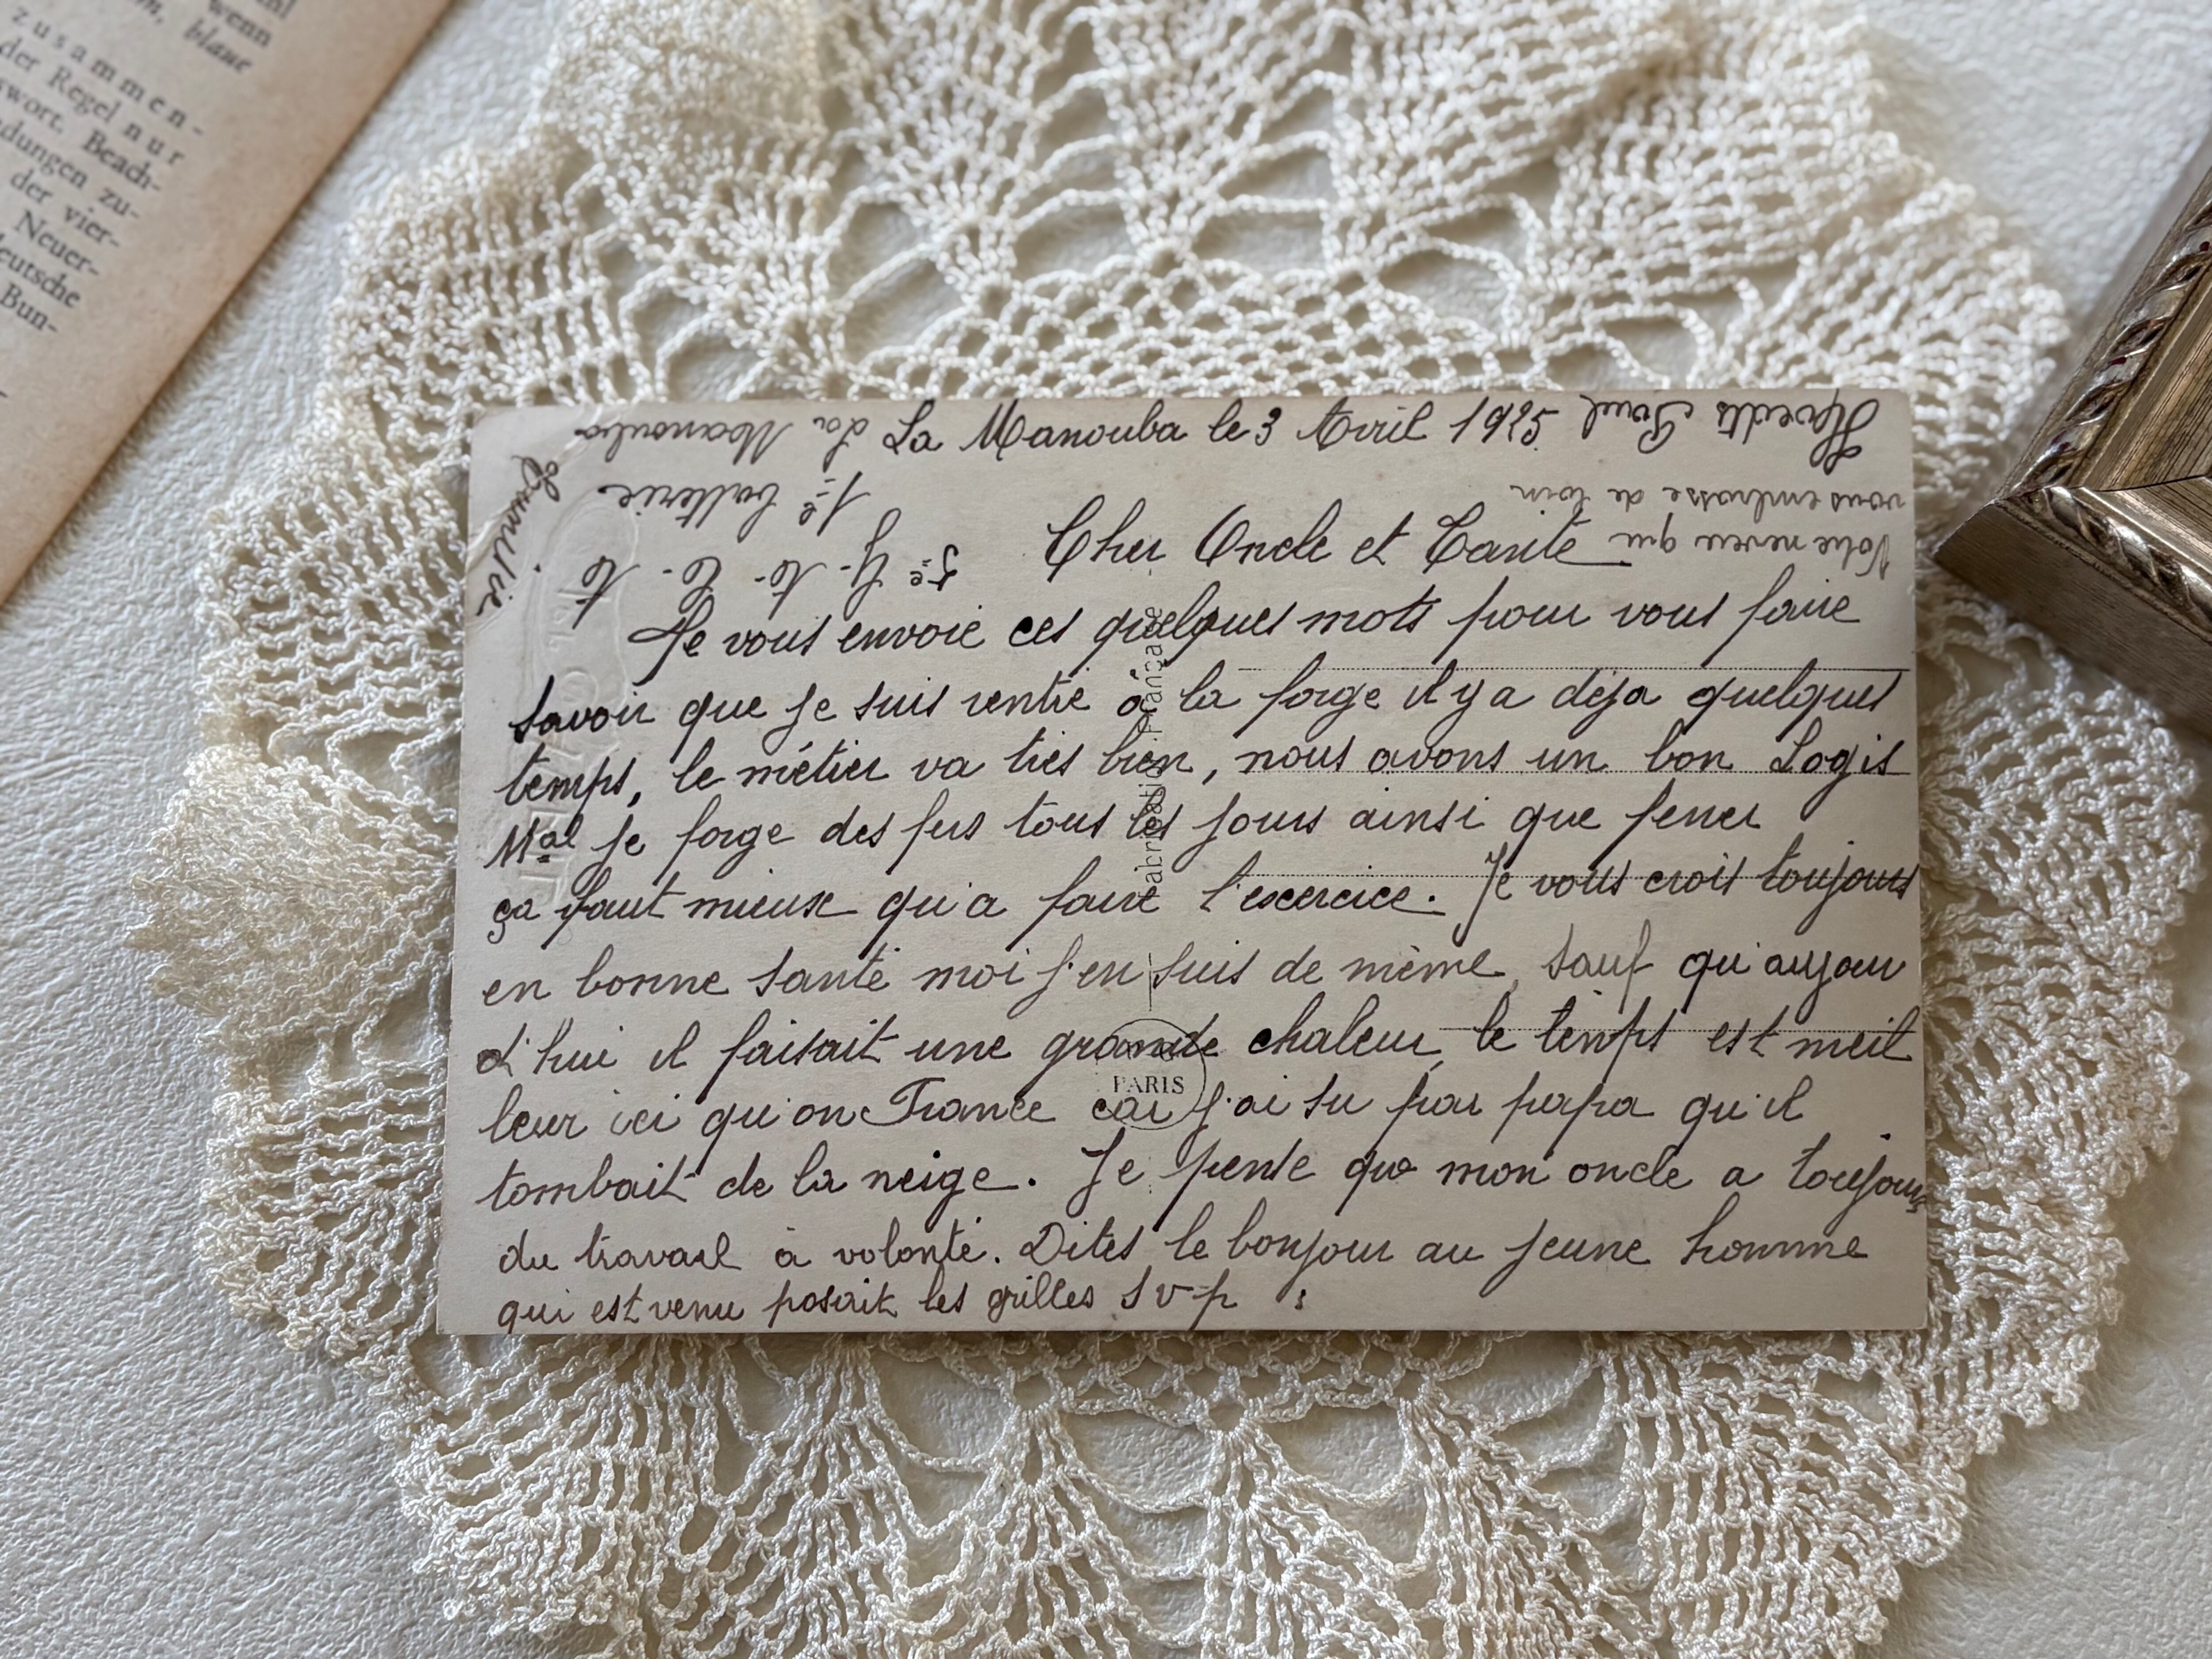 zusammen-
der Regel nur
swort. Beach-
dungen zu-
der vier-
Neuer-
eutsche
Bun-
wenn
blaue
La Manouba le 3 Avril 1925
Cher Oncle et Tante
Je vous envoie ces quelques mots pour vous faire
savoir que je suis rentré à la forge il y a déja quelques
temps, le métier va très bien, nous avons un bon Logis
Mal je forge des fers tous les jours ainsi que ferrer
ça vaut mieux qu'a faire l'exercice. Je vous crois toujours
en bonne santé moi j'en suis de même, sauf qu'aujour
d'hui il faisait une grande chaleur, le temps est meil
leur ici qu'on France car j'ai su par papa qu'il
tombait de la neige. Je pense que mon oncle a toujours
du travail à volonté. Dites le bonjour au jeune homme
qui est venu posait les grilles svp
Votre neveu qui
vous embrasse de loin
Paul
1e batterie
La Manouba
Tunisie
Fabrication Française
PARIS